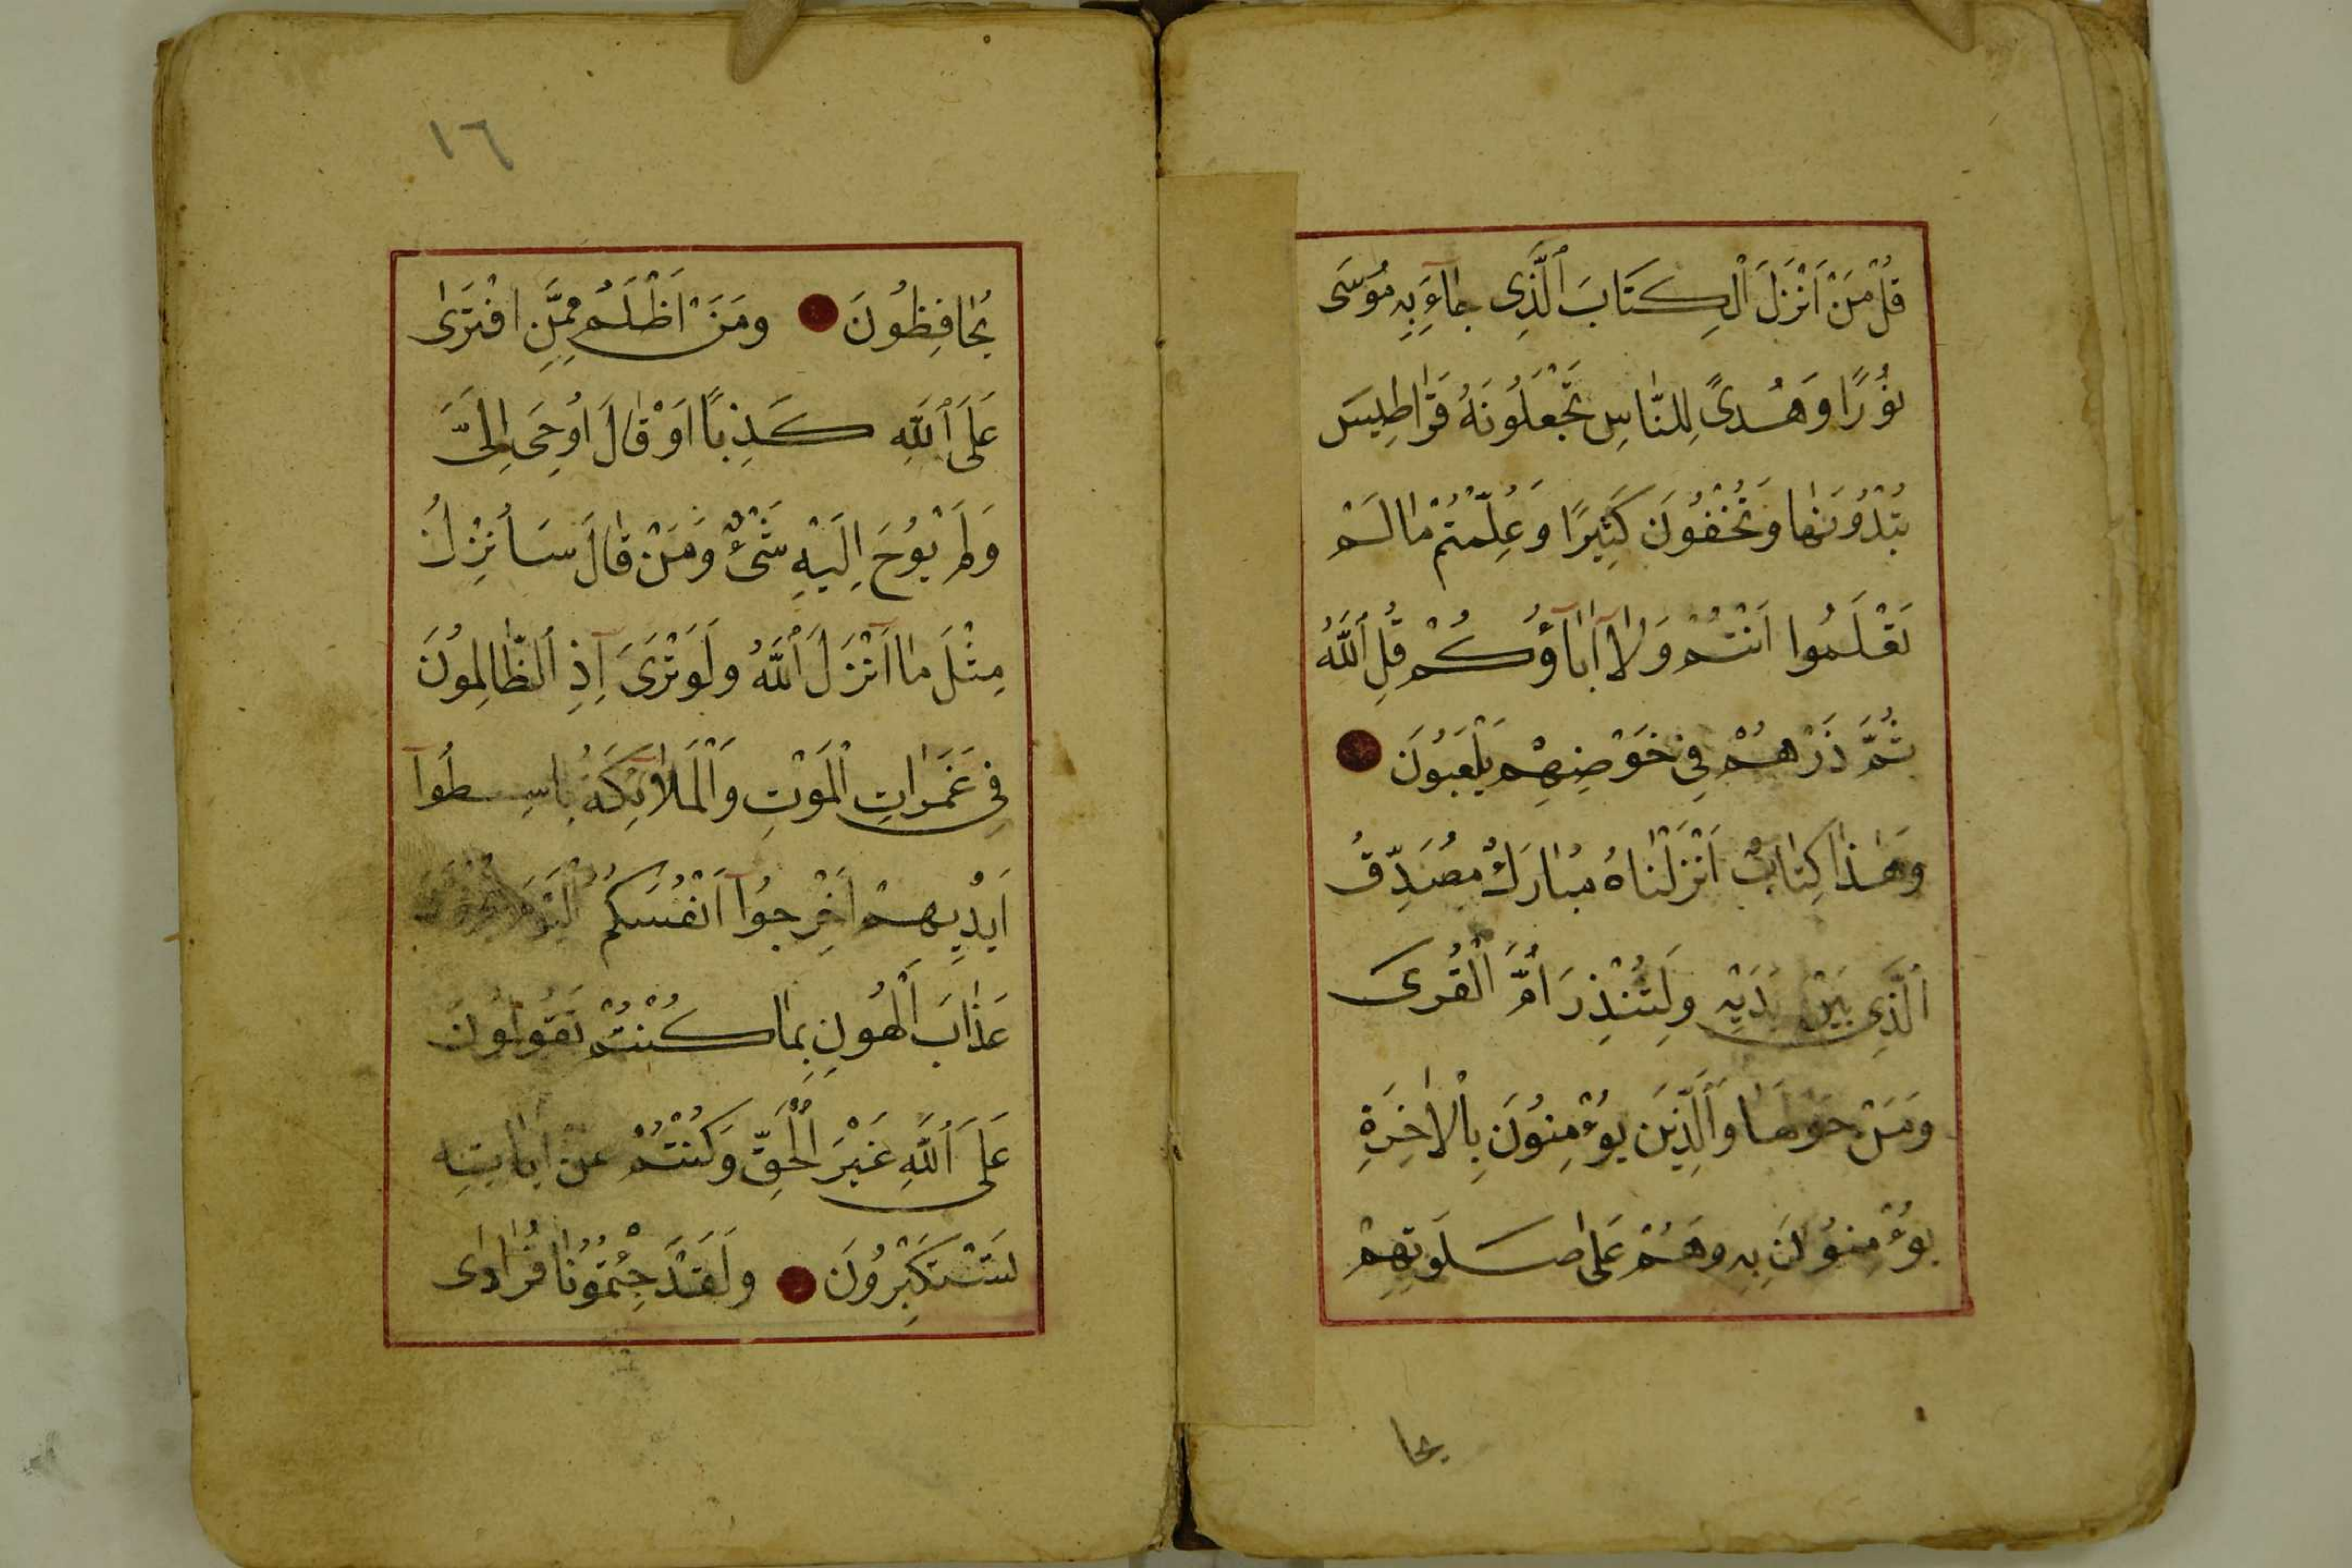 قُلْ مَنْ اَنْزَلَ الْكِتَابَ الَّذِى جَآءَ بِهِ مُوسَى
نُورًا وَهُدىً لِلنَّاسِ تَجْعَلُونَهُ قَرَاطِيسَ
تُبْدُونَهَا وَتُخْفُونَ كَثِيرًا وَعُلِّمْتُمْ مَا لَمْ
تَعْلَمُوا اَنْتُمْ وَلَا آبَاؤُكُمْ قُلِ اللَّهُ
ثُمَّ ذَرْهُمْ فِى خَوْضِهِمْ يَلْعَبُونَ
وَهَذَا كِتَابٌ اَنْزَلْنَاهُ مُبَارَكٌ مُصَدِّقُ
الَّذِى بَيْنَ يَدَيْهِ وَلِتُنْذِرَ اُمَّ الْقُرَى
وَمَنْ حَوْلَهَا وَالَّذِينَ يُؤْمِنُونَ بِالْاٰخِرَةِ
يُؤْمِنُونَ بِهِ وَهُمْ عَلَى صَلَوتِهِمْ
يحا
١٦
يُحَافِظُونَ وَمَنْ اَظْلَمُ مِمَّنِ افْتَرَى
عَلَى اللَّهِ كَذِبًا اَوْ قَالَ اُوحِىَ اِلَىَّ
وَلَمْ يُوحَ اِلَيْهِ شَىْءٌ وَمَنْ قَالَ سَاُنْزِلُ
مِثْلَ مَا اَنْزَلَ اللَّهُ وَلَوْ تَرَى اِذِ الظَّالِمُونَ
فِى غَمَرَاتِ الْمَوْتِ وَالْمَلَائِكَةُ بَاسِطُوآ
اَيْدِيهِمْ اَخْرِجُوآ اَنْفُسَكُمُ الْيَوْمَ تُجْزَوْنَ
عَذَابَ الْهُونِ بِمَا كُنْتُمْ تَقُولُونَ
عَلَى اللَّهِ غَيْرَ الْحَقِّ وَكُنْتُمْ عَنْ اٰيَاتِهِ
تَسْتَكْبِرُونَ وَلَقَدْ جِئْتُمُونَا فُرَادَى